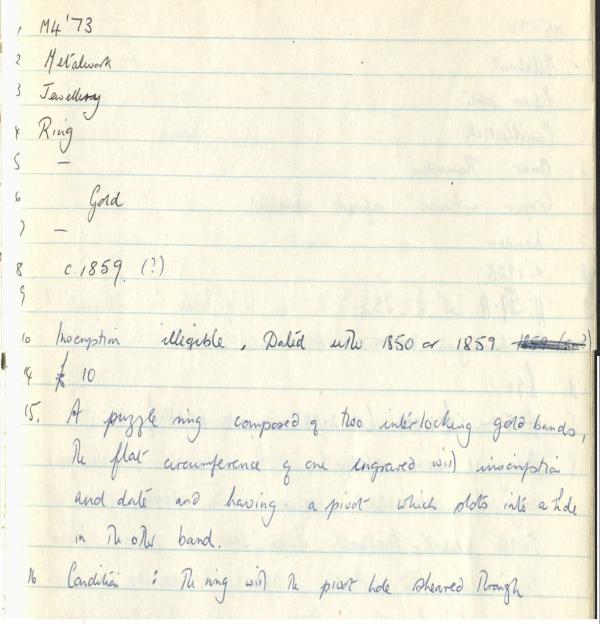 1 M4'73
2 Metalwork
3 Jewellery
4 Ring
5 —
6 Gold
7 —
8 c.1859 (?)
9
10 Inscription illegible, Dated either 1850 or 1859
14 £ 10
15. A puzzle ring composed of two interlocking gold bands,
the flat circumference of one engraved with inscription
and date and having a pivot which slots into a hole
in the other band.
16 Condition : The ring with the pivot hole sheared through